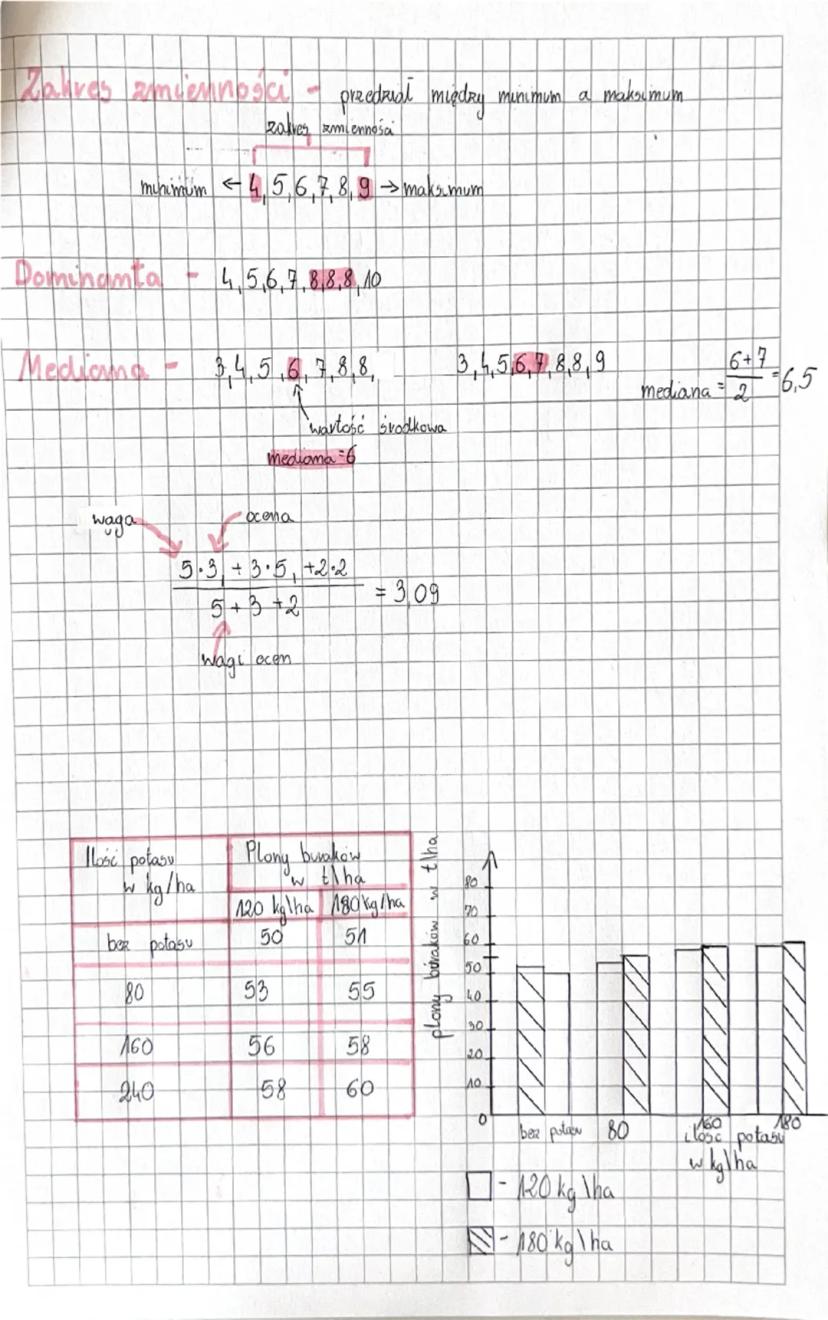 Zakres zmienności - przedział między minimum a maksimum
zakres zmienności
minimum ← 4, 5, 6, 7, 8, 9 → maksimum
Dominanta - 4, 5, 6, 7, 8, 8, 8, 10
Mediana - 3, 4, 5, 6, 7, 8, 8, 3, 4, 5, 6, 7, 8, 8, 9 mediana = 6+7 / 2 = 6,5
wartość środkowa
mediana = 6
waga ocena
5·3 + 3·5 + 2·2
5 + 3 + 2
= 3,09
wagi ocen
Ilość potasu w kg/ha
Plony buraków w t/ha
120 kg/ha 180 kg/ha
bez potasu 50 51
80 53 55
160 56 58
240 58 60
plony buraków w t/ha
80
70
60
50
40
30
20
10
0
bez potasu 80 160 180
ilość potasu
w kg/ha
- 120 kg/ha
- 180 kg/ha